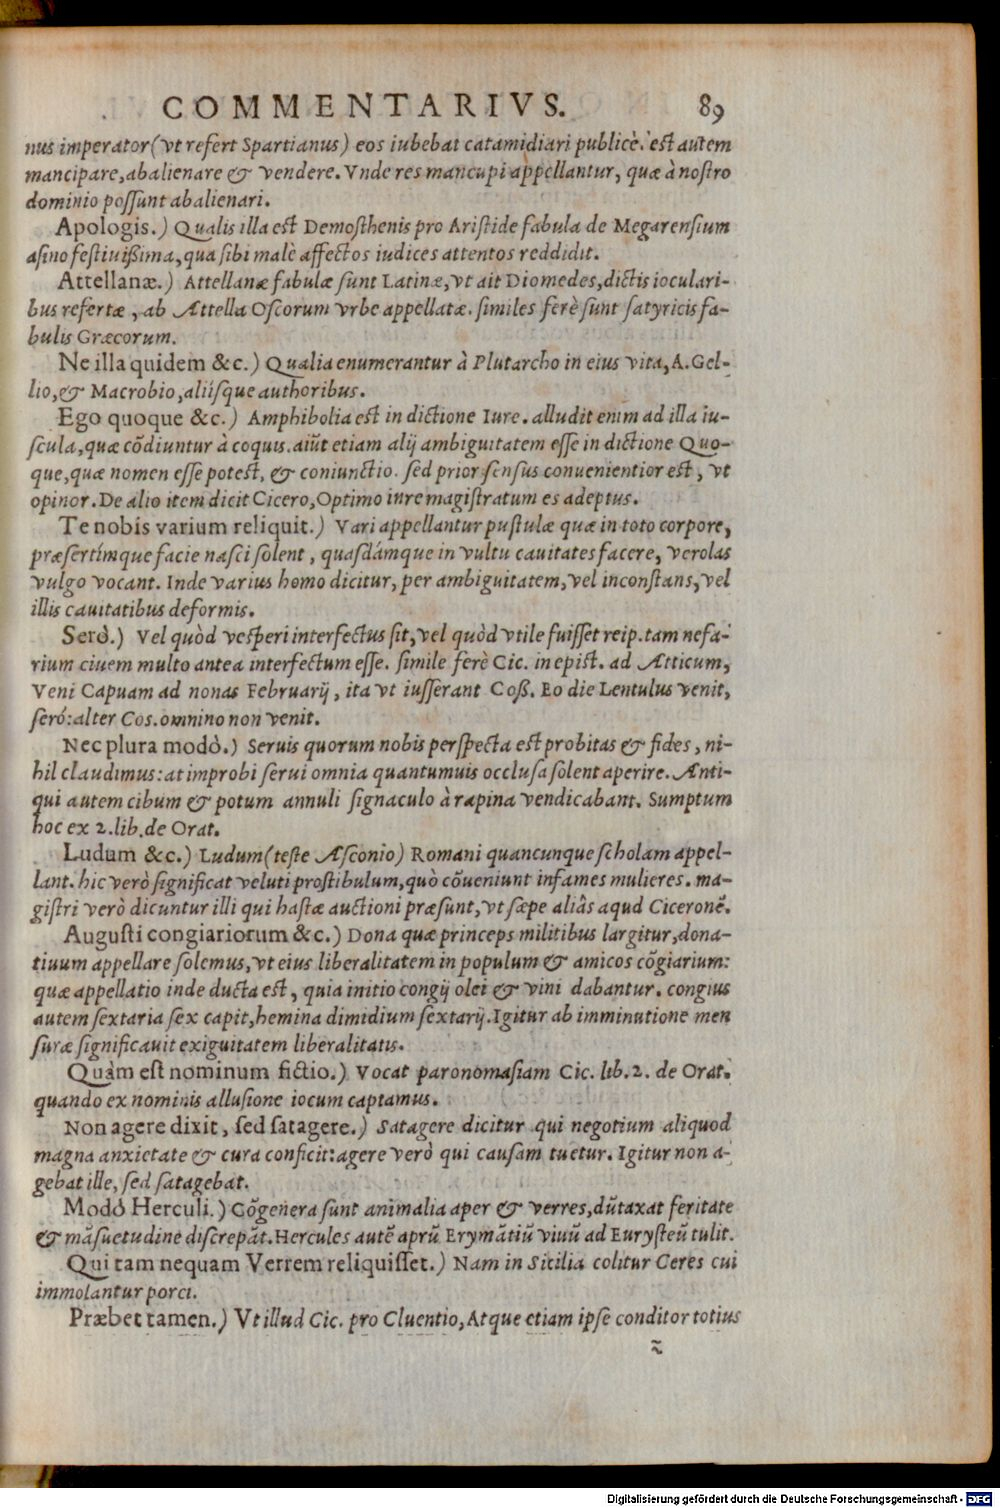 COMMENTARIVS. 89
nus imperator (vt refert Spartianus) eos iubebat catamidiari publicè. est autem
mancipare, abalienare & vendere. Vnde res mancupi appellantur, quæ à nostro
dominio possunt abalienari.
Apologis.) Qualis illa est Demosthenis pro Aristide fabula de Megarensium
asino festiuißima, qua sibi malè affectos iudices attentos reddidit.
Attellanæ.) Attellanæ fabulæ sunt Latinæ, vt ait Diomedes, dictis ioculari-
bus refertæ, ab Attella Oscorum vrbe appellatæ. similes ferè sunt satyricis fa-
bulis Græcorum.
Ne illa quidem &c.) Qualia enumerantur à Plutarcho in eius vita, A. Gel-
lio, & Macrobio, aliisque authoribus.
Ego quoque &c.) Amphibolia est in dictione Iure. alludit enim ad illa iu-
scula, quæ cõdiuntur à coquis. aiũt etiam alij ambiguitatem esse in dictione Quo-
que, quæ nomen esse potest, & coniunctio. sed prior sensus conuenientior est, vt
opinor. De alio item dicit Cicero, Optimo iure magistratum es adeptus.
Te nobis varium reliquit.) Vari appellantur pustulæ quæ in toto corpore,
præsertímque facie nasci solent, quasdámque in vultu cauitates facere, verolas
vulgo vocant. Inde varius homo dicitur, per ambiguitatem, vel inconstans, vel
illis cauitatibus deformis.
Serò.) Vel quòd vesperi interfectus sit, vel quòd vtile fuisset reip. tam nefa-
rium ciuem multo antea interfectum esse. simile ferè Cic. in epist. ad Atticum,
Veni Capuam ad nonas Februarij, ita vt iusserant Coß. Eo die Lentulus venit,
seró: alter Cos. omnino non venit.
Nec plura modò.) Seruis quorum nobis perspecta est probitas & fides, ni-
hil claudimus: at improbi serui omnia quantumuis occlusa solent aperire. Anti-
qui autem cibum & potum annuli signaculo à rapina vendicabant. Sumptum
hoc ex 2. lib. de Orat.
Ludum &c.) Ludum (teste Asconio) Romani quancunque scholam appel-
lant. hic verò significat veluti prostibulum, quò cõueniunt infames mulieres. ma-
gistri verò dicuntur illi qui hastæ auctioni præsunt, vt sæpe aliâs aqud Ciceronẽ.
Augusti congiariorum &c.) Dona quæ princeps militibus largitur, dona-
tiuum appellare solemus, vt eius liberalitatem in populum & amicos cõgiarium:
quæ appellatio inde ducta est, quia initio congij olei & vini dabantur. congius
autem sextaria sex capit, hemina dimidium sextarij. Igitur ab imminutione men
suræ significauit exiguitatem liberalitatis.
Quàm est nominum fictio.) Vocat paronomasiam Cic. lib. 2. de Orat.
quando ex nominis allusione iocum captamus.
Non agere dixit, sed satagere.) Satagere dicitur qui negotium aliquod
magna anxietate & cura conficit: agere verò qui causam tuetur. Igitur non a-
gebat ille, sed satagebat.
Modò Herculi.) Cõgenera sunt animalia aper & verres, dũtaxat feritate
& mãsuetudine discrepãt. Hercules autẽ aprũ Erymãtiũ viuũ ad Eurysteũ tulit.
Qui tam nequam Verrem reliquisset.) Nam in Sicilia colitur Ceres cui
immolantur porci.
Præbet tamen.) Vt illud Cic. pro Cluentio, Atque etiam ipse conditor totius
Digitalisierung gefördert durch die Deutsche Forschungsgemeinschaft - DFG